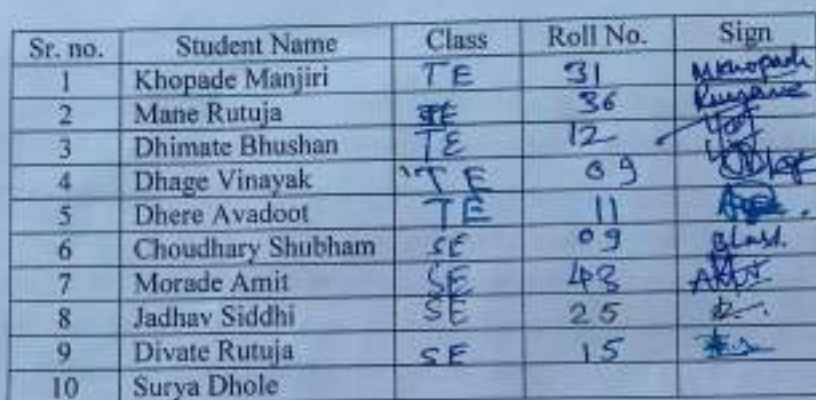 Sr. no. Student Name Class Roll No. Sign
1 Khopade Manjiri TE 31 MKhopade
2 Mane Rutuja TE 36
3 Dhimate Bhushan TE 12
4 Dhage Vinayak TE 09
5 Dhere Avadoot TE 11
6 Choudhary Shubham SE 09
7 Morade Amit SE 48
8 Jadhav Siddhi SE 25
9 Divate Rutuja SE 15
10 Surya Dhole